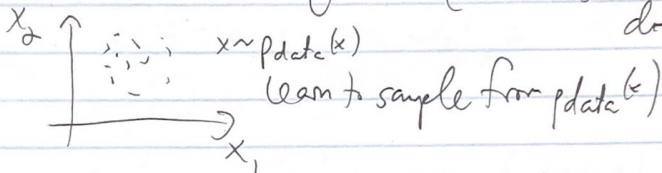 x₂
x ~ pdata(x)
learn to sample from pdata(x)
x₁